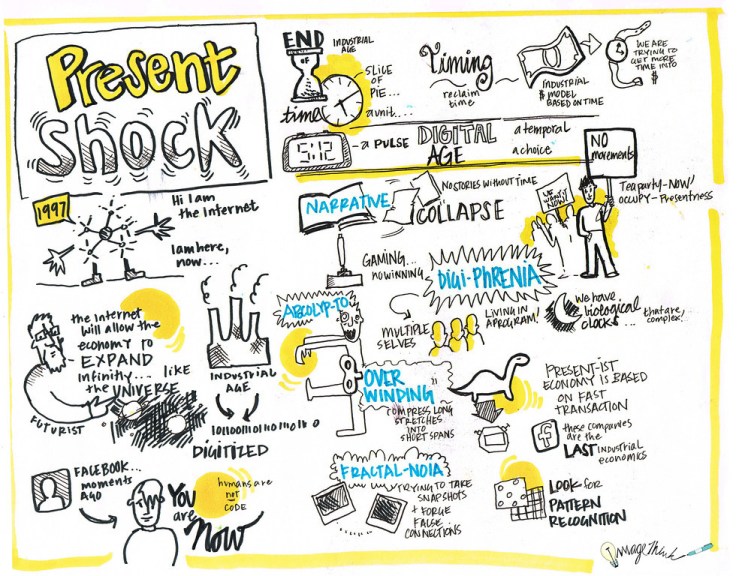 Present
Shock
1997
Hi I am
the Internet
I am here,
now...
the Internet
will allow the
economy to
EXPAND
infinitely... like
the UNIVERSE
FUTURIST
INDUSTRIAL
AGE
10100100101110111 0
DIGITIZED
FACEBOOK...
moments
AGO
YOU
are
NOW
humans are
not
CODE
END
OF
time
INDUSTRIAL
AGE
SLICE
OF
PIE...
a unit...
Timing
reclaim
time
INDUSTRIAL
$ MODEL
BASED ON TIME
WE ARE
TRYING TO
GET MORE
TIME INTO
$
5:12
a PULSE
DIGITAL
AGE
a temporal
a choice
NARRATIVE
COLLAPSE
NO STORIES WITHOUT TIME
GAMING...
no winning
WE
WANT IT
NOW!
NO
movements
Tea party-NOW!
OCCUPY-Presentness
DIGI-PHRENIA
MULTIPLE
SELVES
LIVING IN
A PROGRAM!
We have
biological
clocks...
that are,
complex!
ABCOLYP-TO
OVER
WINDING
COMPRESS LONG
STRETCHES
INTO
SHORT SPANS
PRESENT-IST
ECONOMY IS BASED
ON FAST
TRANSACTION
f
these companies
are the
LAST industrial
economics
FRACTAL-NOIA
TRYING TO TAKE
SNAPSHOTS
+ FORGE
FALSE
CONNECTIONS
LOOK for
PATTERN
RECOGNITION
ImageThink